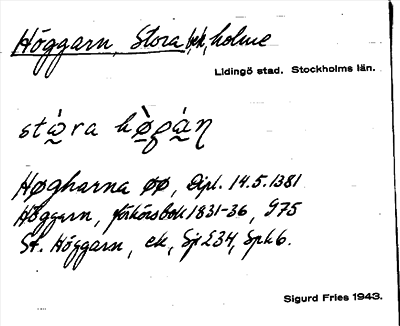 Höggarn, Stora, ek, holme
Lidingö stad. Stockholms län.
stὰ̰ra hø̀gáŋ
Høgharna øø, Dipl. 14.5.1381
Höggarn, förhörsbok 1831-36, G75
St. Höggarn, ek, Sjö 234, Spk 6.
Sigurd Fries 1943.